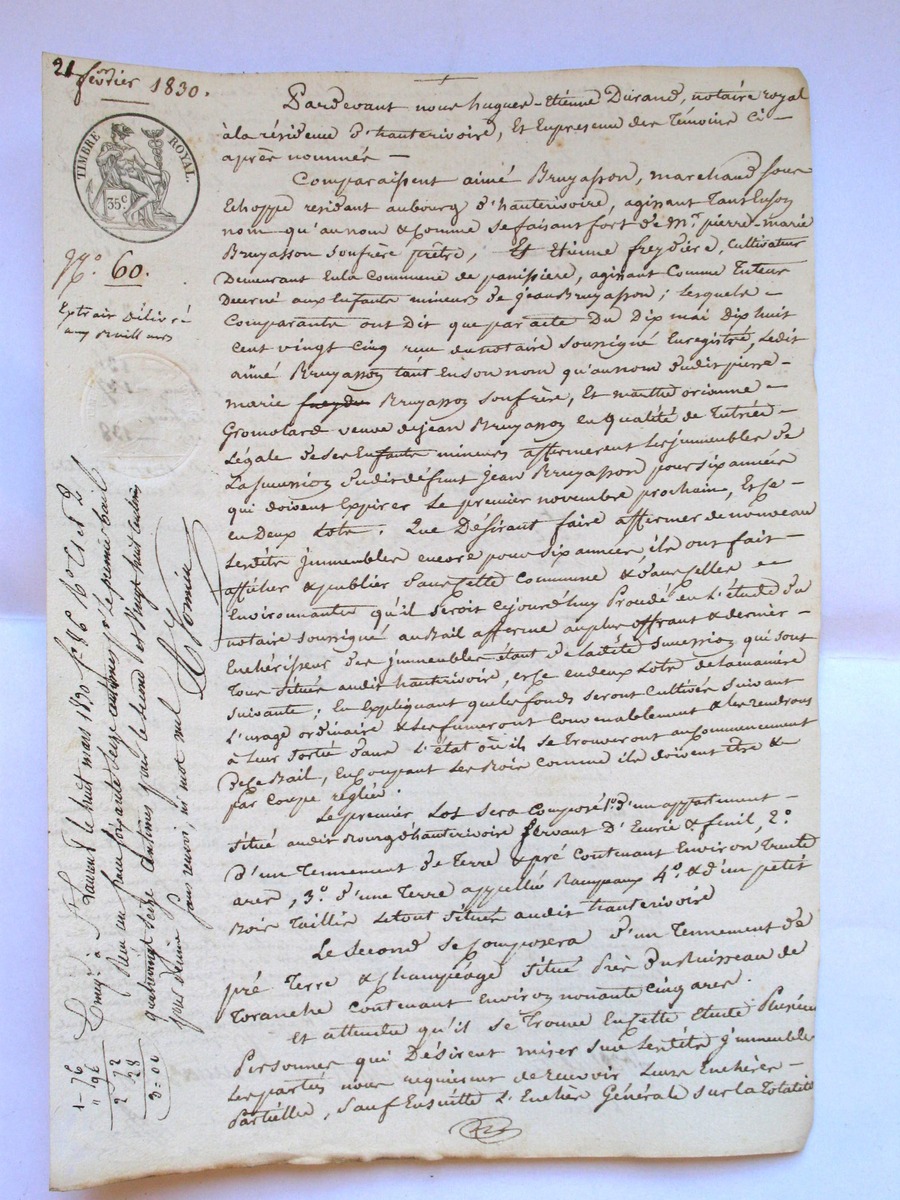 21 février 1830.
TIMBRE ROYAL.
35c
N.o 60.
Extrait délivré
Pardevant nous hugues-Etienne Durand, notaire royal
à la résidence d'hauterivoire, Et En presence des témoins ci-
après nommés —
Comparaissent aimé Bruyasson, marchand sous
Echoppe residant au bourg d'hauterivoire, agissant tant En son
nom qu'au nom & comme se faisant fort de M.r pierre-marie
Bruyasson son frère prêtre, Et Etienne freydière, Cultivateur
Demeurant En la Commune de panissiere, agissant Comme Tuteur
Decerné aux Enfants mineurs de jean Bruyasson ; lesquels —
Comparants ont Dit que par acte Du Dix mai Dix huit
cent vingt cinq reçu du notaire soussigné Enregistré, Ledit
aimé Bruyasson tant En son nom qu'au nom dudit pierre-
marie Bruyasson son frère, Et marthe orianne —
Gromolard veuve de jean Bruyasson en qualité de Tutrice —
Légale de ses Enfants mineurs affermerent les immeubles de
La succession dudit défunt jean Bruyasson pour six années
qui doivent Expirer le premier novembre prochain, Et ce
en Deux Lots ; Que Désirant faire affermer de nouveau
Lesdits immeubles encore pour six années ils ont fait —
afficher & publier dans cette Commune & dans celles —
Environnantes qu'il seroit cejourd'huy procédé en l'étude du
notaire soussigné au Bail a fferme au plus offrant & dernier —
Enchérisseur des immeubles étant de Ladite succession qui sont
Tous situés audit hauterivoire, et ce en deux Lots de la manière
suivante ; En Expliquant que les fonds seront Cultivés suivant
L'usage ordinaire & les fumeront Convenablement & les rendrons
à leur Sortie dans L'état où ils se trouveront au Commencement
de ce Bail, En coupant les Bois comme ils doivent être &
par coupe réglée.
Le premier Lot sera Composé 1.o d'un appartement —
situé audit Bourg d'hauterivoire servant D'Ecurie & fenil, 2.o
d'un Tennement de Terre & pré contenant Environ Trente
ares, 3.o d'une Terre appellée Rampaux 4.o & d'un petit
Bois Taillis Le tout situés audit hauterivoire
Le second se Composera d'un Tennement de
pré Terre & champéage situé Près du Ruisseau de
Toranche Contenant Environ nonante cinq ares.
Et attendu qu'il se Trouve En cette Etude Plusieurs
Personnes qui Désirent miser sur Lesdits immeubles
Les parties nous requierent de recevoir Leurs Enchères —
Partielles, sauf Ensuitte L'Enchère Générale sur La Totalité
Enreg. à S.t Laurent le huit mars 1830 f.o 86 R.o C.es 1 & 2
Reçu un franc soixante seize centimes p.r le premier bail
quatrevingt seize centimes p.r le second et vingt huit centimes
pour decime sans renvoi, ni mot nul
1-76
" 96
2 72
28
3=00